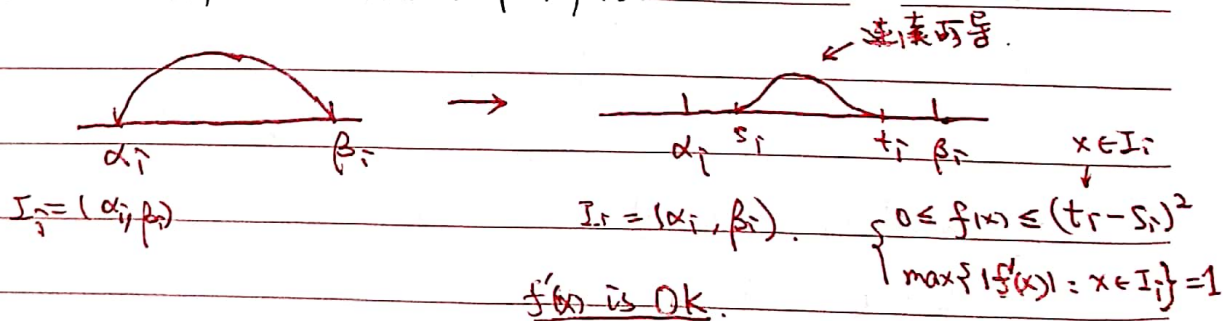 连续可导.
αᵢ βᵢ → αᵢ sᵢ tᵢ βᵢ x∈Iᵢ
Iᵢ=(αᵢ,βᵢ) Iᵢ=(αᵢ,βᵢ). { 0≤f(x)≤(tᵢ-sᵢ)²
max{|f'(x)|: x∈Iᵢ}=1
f'(x) is OK.